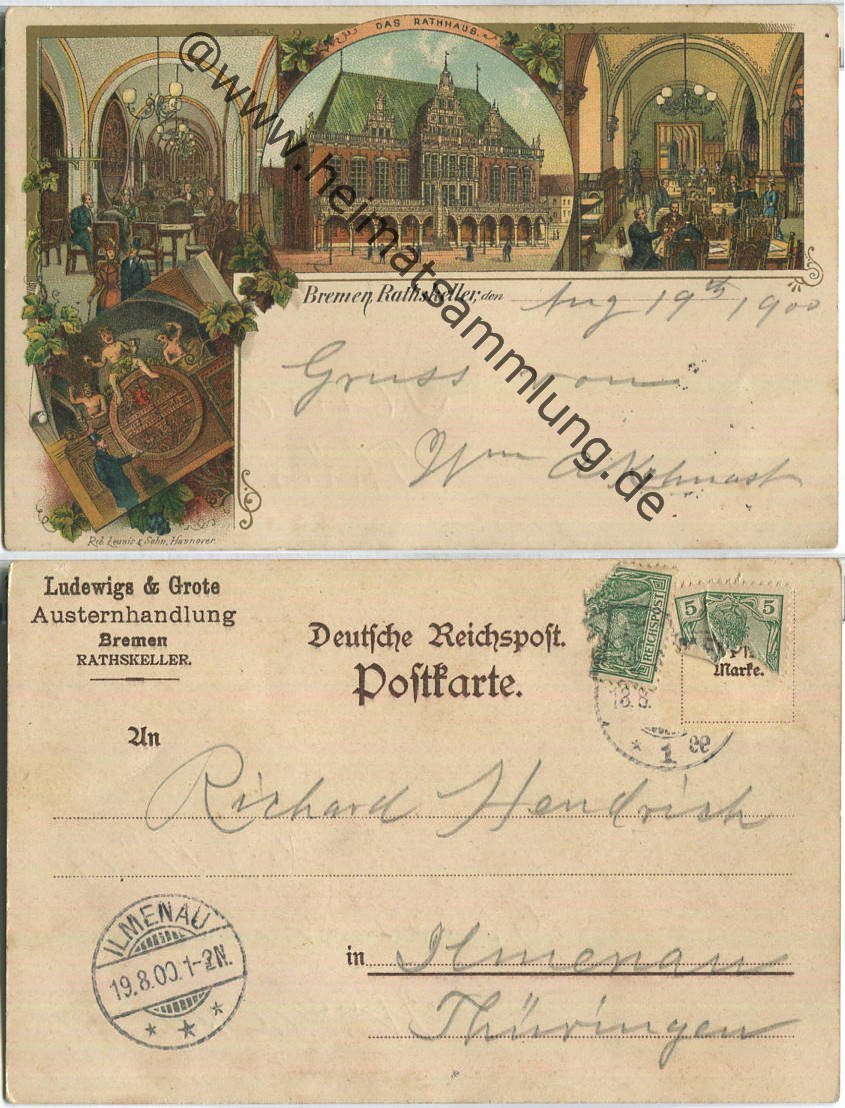 DAS RATHHAUS.
@www.heimatsammlung.de
Bremen, Rathskeller, den Aug 19th 1900
Gruss von
Wm
Rob. Leunis & Sohn, Hannover.
Ludewigs & Grote
Austernhandlung
Bremen
RATHSKELLER.
Deutsche Reichspost.
Postkarte.
REICHSPOST
5 5
Marke.
18.8.
* 1
An
Richard Hendrich
ILMENAU
19.8.00.1-2N.
* * *
in Ilmenau
Thüringen